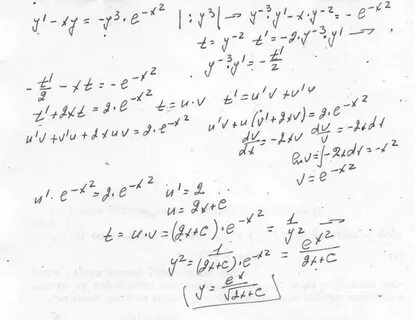 y' - xy = -y³·e^-x² |:y³| → y^-3·y' - x·y^-2 = -e^-x²
t = y^-2 t' = -2·y^-3·y' →
y^-3·y' = -t'/2
-t'/2 - xt = -e^-x²
t' + 2xt = 2·e^-x² t = u·v t' = u'v + v'u
u'v + v'u + 2xuv = 2·e^-x² u'v + u(v' + 2xv) = 2·e^-x²
dv/dx = -2xv dv/v = -2xdx
lnv = ∫-2xdx = -x²
v = e^-x²
u'·e^-x² = 2·e^-x² u' = 2
u = 2x+c
t = u·v = (2x+c)·e^-x² = 1/y² →
y² = 1/((2x+c)·e^-x²) = e^x²/(2x+c)
y = e^x/√(2x+c)